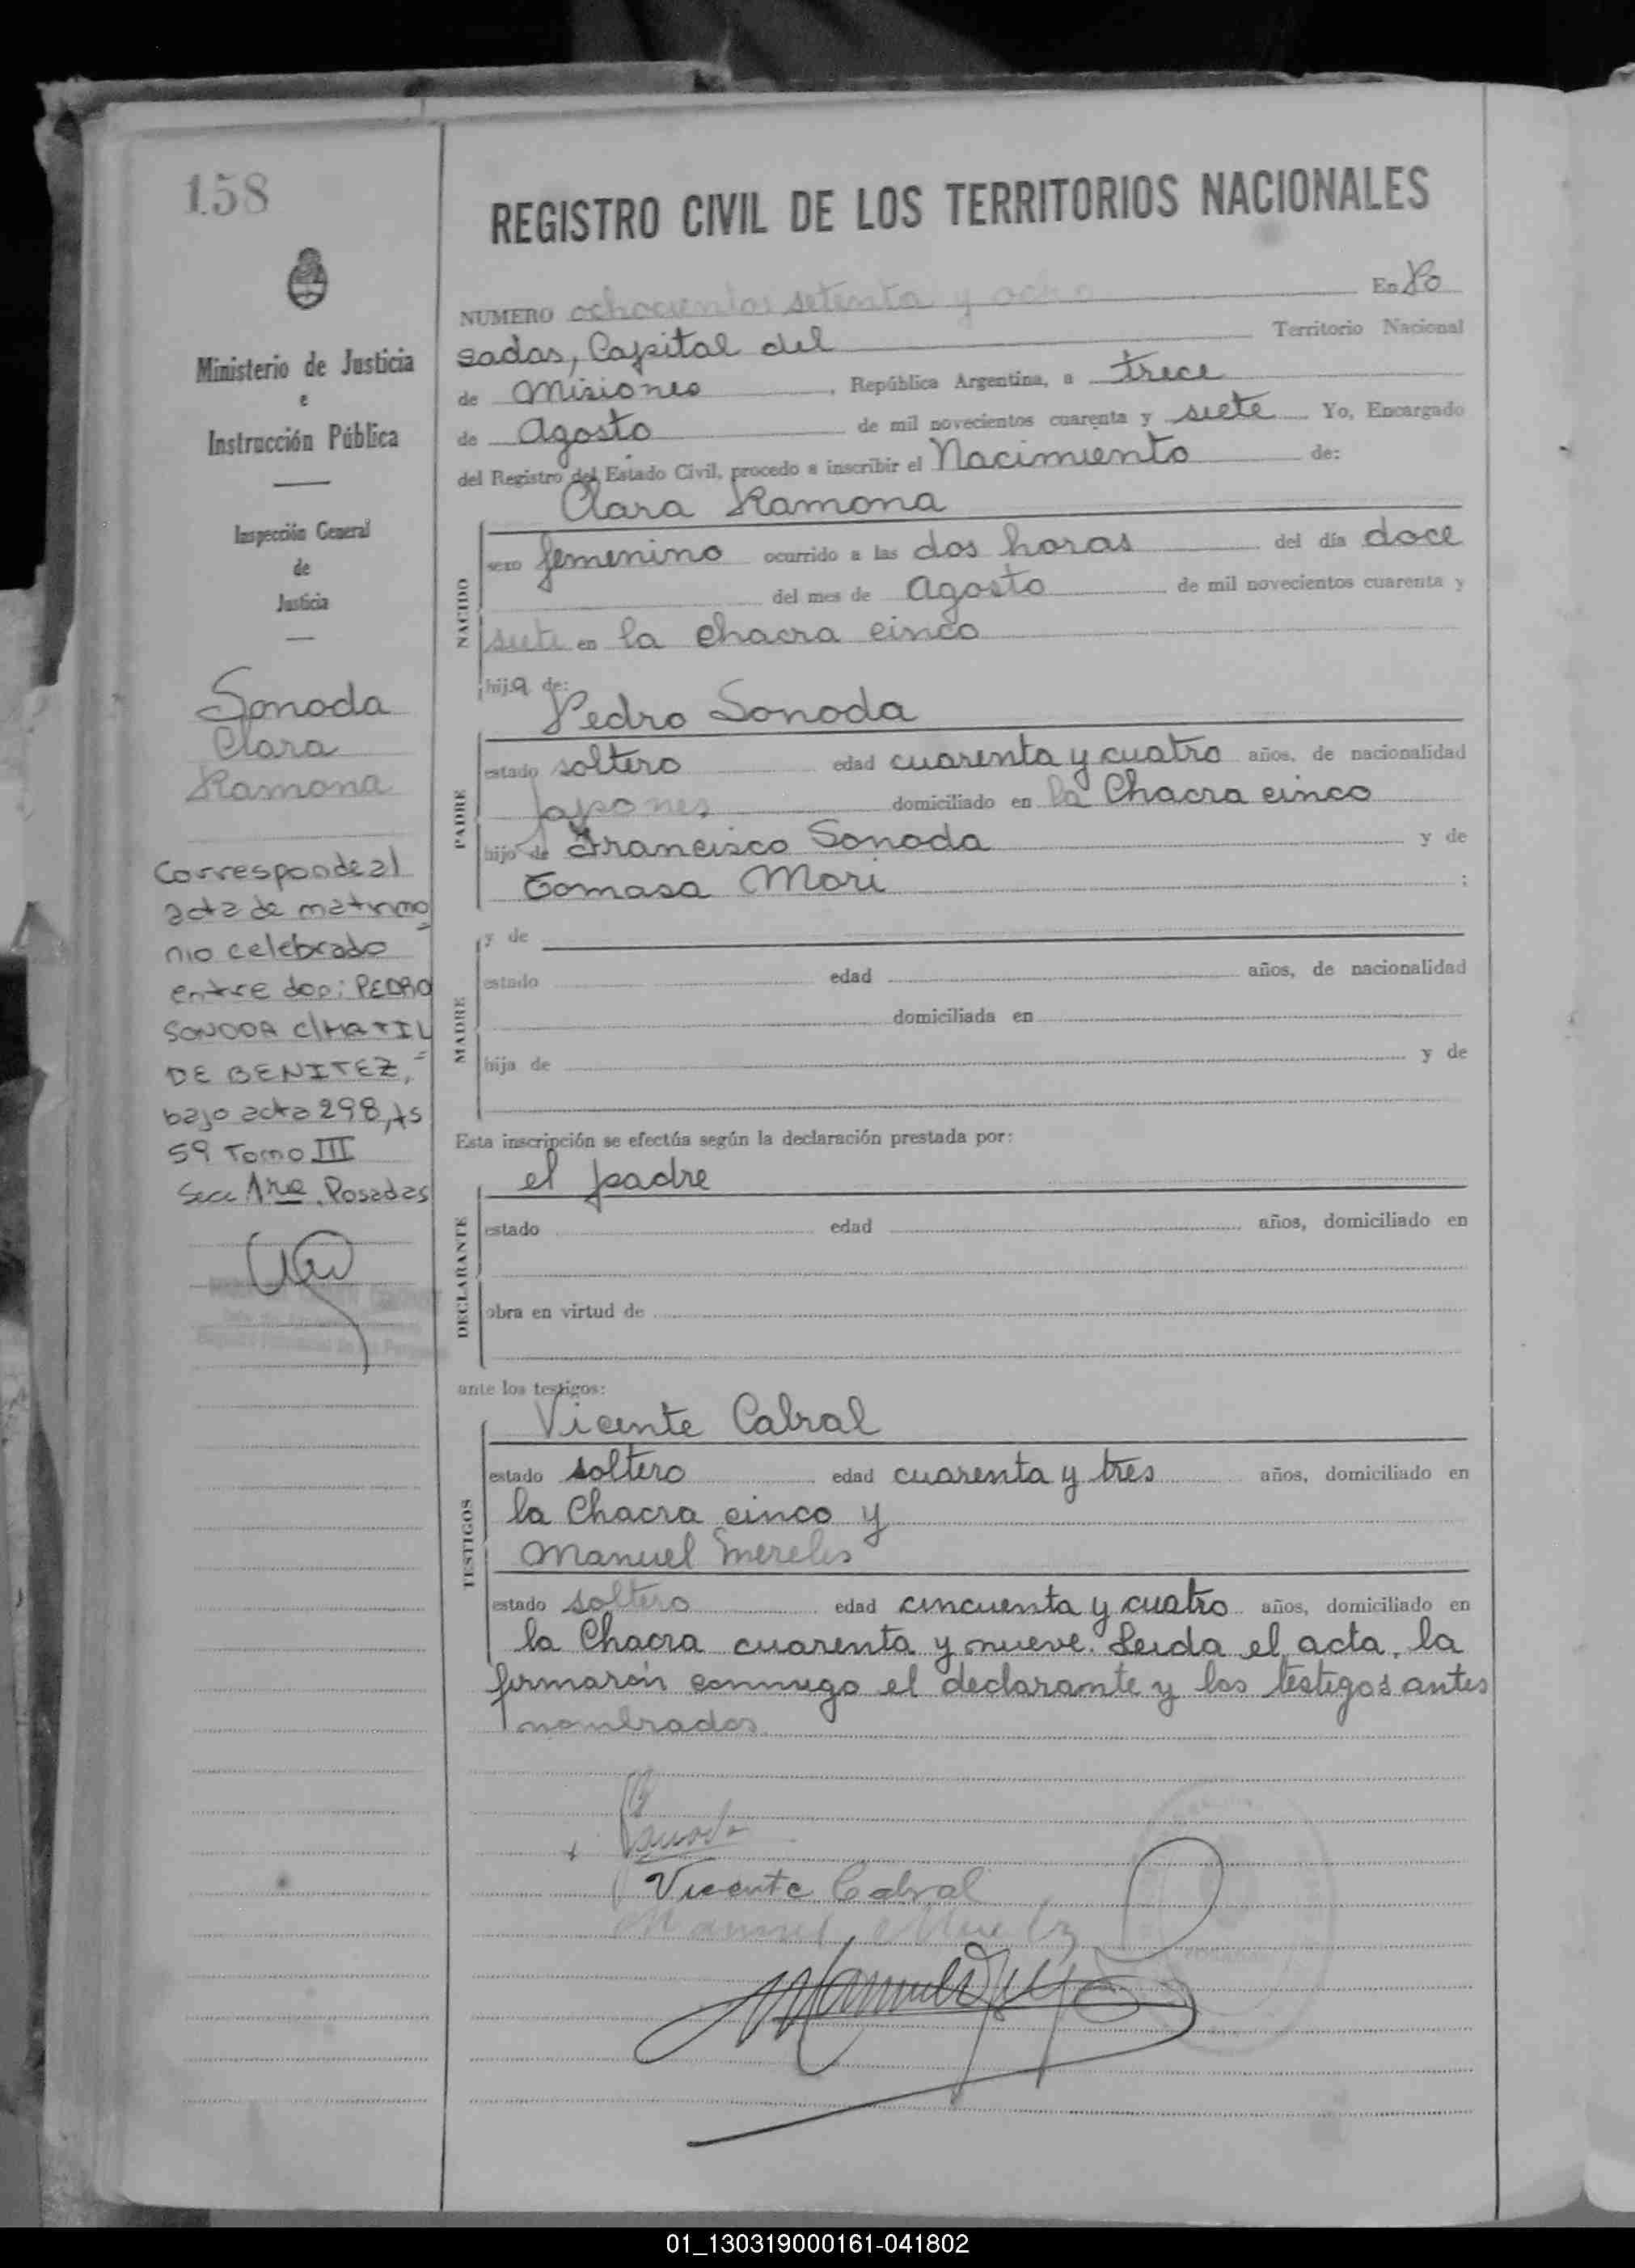 158
REGISTRO CIVIL DE LOS TERRITORIOS NACIONALES
NUMERO ochocientos setenta y ocho En Po
sadas, Capital del Territorio Nacional
de Misiones, República Argentina, a trece
de Agosto de mil novecientos cuarenta y siete Yo, Encargado
del Registro del Estado Civil, procedo a inscribir el Nacimiento de:
Clara Ramona
NACIDO
sexo femenino ocurrido a las dos horas del día doce
del mes de Agosto de mil novecientos cuarenta y
siete en la chacra cinco
hija de:
Pedro Sonoda
PADRE
estado soltero edad cuarenta y cuatro años, de nacionalidad
Japones domiciliado en la Chacra cinco
hijo de Francisco Sonoda y de
Tomasa Mori ;
y de
MADRE
estado edad años, de nacionalidad
domiciliada en
hija de y de
Esta inscripción se efectúa según la declaración prestada por:
el padre
DECLARANTE
estado edad años, domiciliado en
obra en virtud de
ante los testigos:
Vicente Cabral
TESTIGOS
estado soltero edad cuarenta y tres años, domiciliado en
la Chacra cinco y
Manuel Mereles
estado soltero edad cincuenta y cuatro años, domiciliado en
la Chacra cuarenta y nueve. Leida el acta, la
firmarón conmigo el declarante y los testigos antes
nombrados
Vicente Cabral
Manuel
Ministerio de Justicia
e
Instrucción Pública
Inspección General
de
Justicia
Sonoda
Clara
Ramona
Corresponde al
acta de matrimo
nio celebrado
entre dop: PEDRO
SONODA c/MATIL
DE BENITEZ,
bajo acta 298, fs
59 Tomo III
Secc 1ra. Posadas
01_130319000161-041802